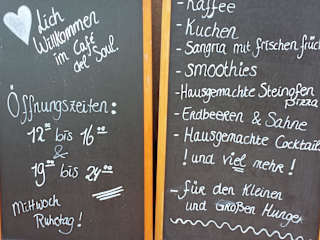 lich
Willkommen
im Café
del Soul.
Öffnungszeiten:
12⁰⁰ bis 16⁰⁰
&
19⁰⁰ bis 24⁰⁰
Mittwoch
Ruhetag!
- Kaffee
- Kuchen
- Sangria mit frischen früc
- smoothies
- Hausgemachte Steinofen
pizza
- Erdbeeren & Sahne
- Hausgemachte Cocktail
! und viel mehr!
- für den Kleinen
und GROßEN Hunger